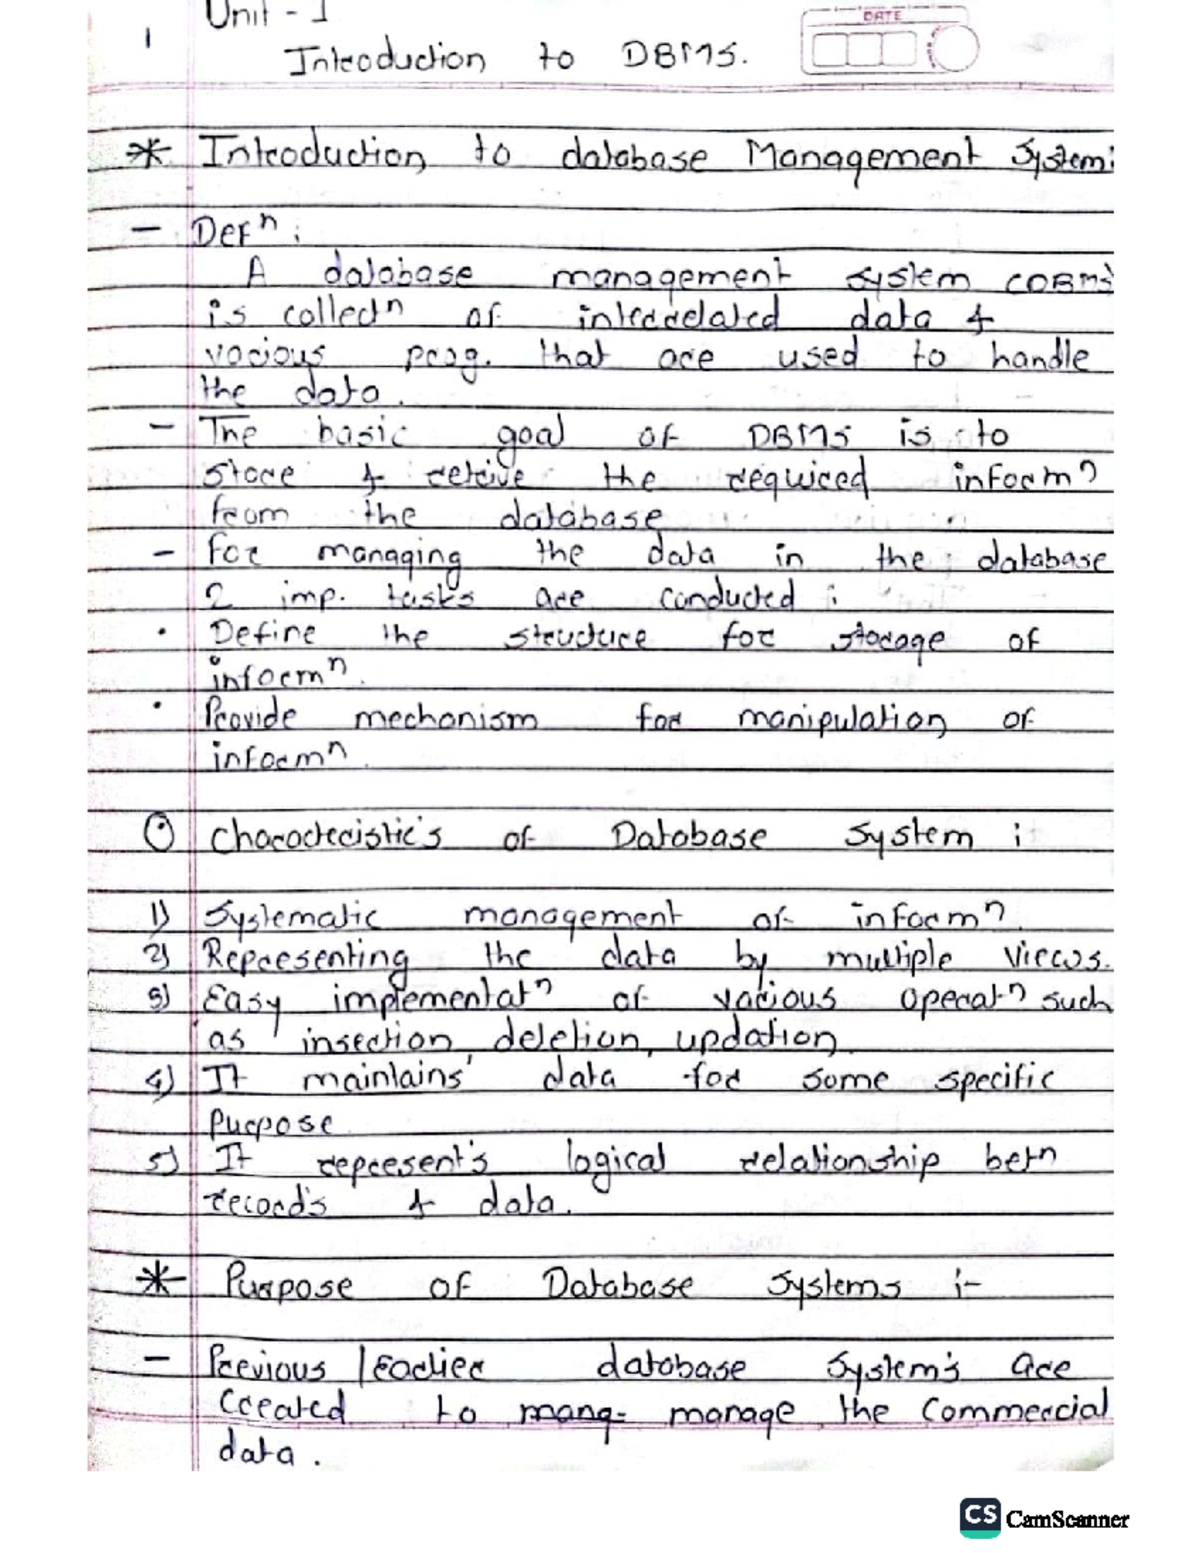 Unit - 1
1
DATE
Introduction to DBMS.
* Introduction to database Management System:
- Defⁿ :
A database management system (DBMS)
is collectⁿ of interrelated data &
various prog. that are used to handle
the data.
- The basic goal of DBMS is to
store & retrive the required informⁿ
from the database
- For managing the data in the database
2 imp. tasks are conducted :
• Define the structure for storage of
informⁿ.
• Provide mechanism for manipulation of
informⁿ.
⊙ Characteristic's of Database System :
1) Systematic management of informⁿ
2) Representing the data by multiple views.
3) Easy implementatⁿ of various operatⁿ such
as insertion, deletion, updation
4) It maintains data for some specific
purpose
5) It represent's logical relationship betn
record's & data.
* Purpose of Database Systems :-
- Previous / Earlier database system's are
created to mang- manage the commercial
data.
CS CamScanner